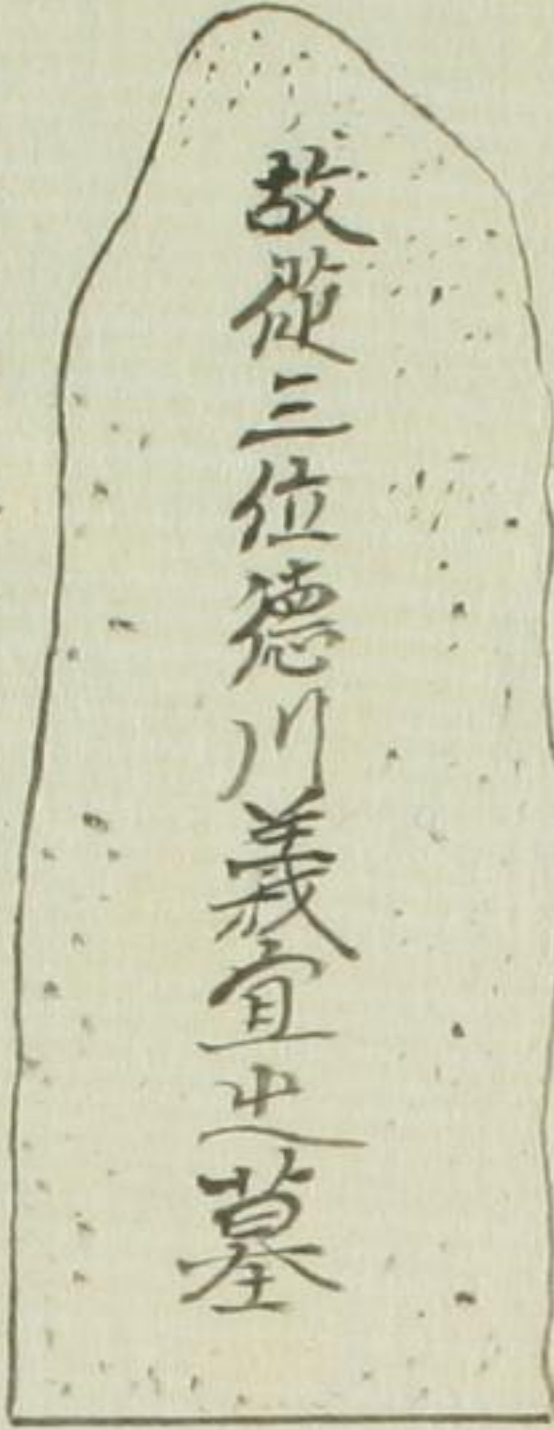 故従三位徳川義宜之墓